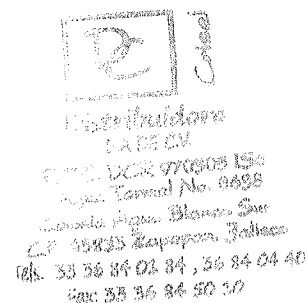 Distribuidora
S.A. DE C.V.
DCR 970505
Agua Termal No. 0698
Colonia Agua Blanca Sur
C.P. 45235 Zapopan, Jalisco
Tels. 33 36 84 02 84, 36 84 04 40
Fax: 33 36 84 50 50